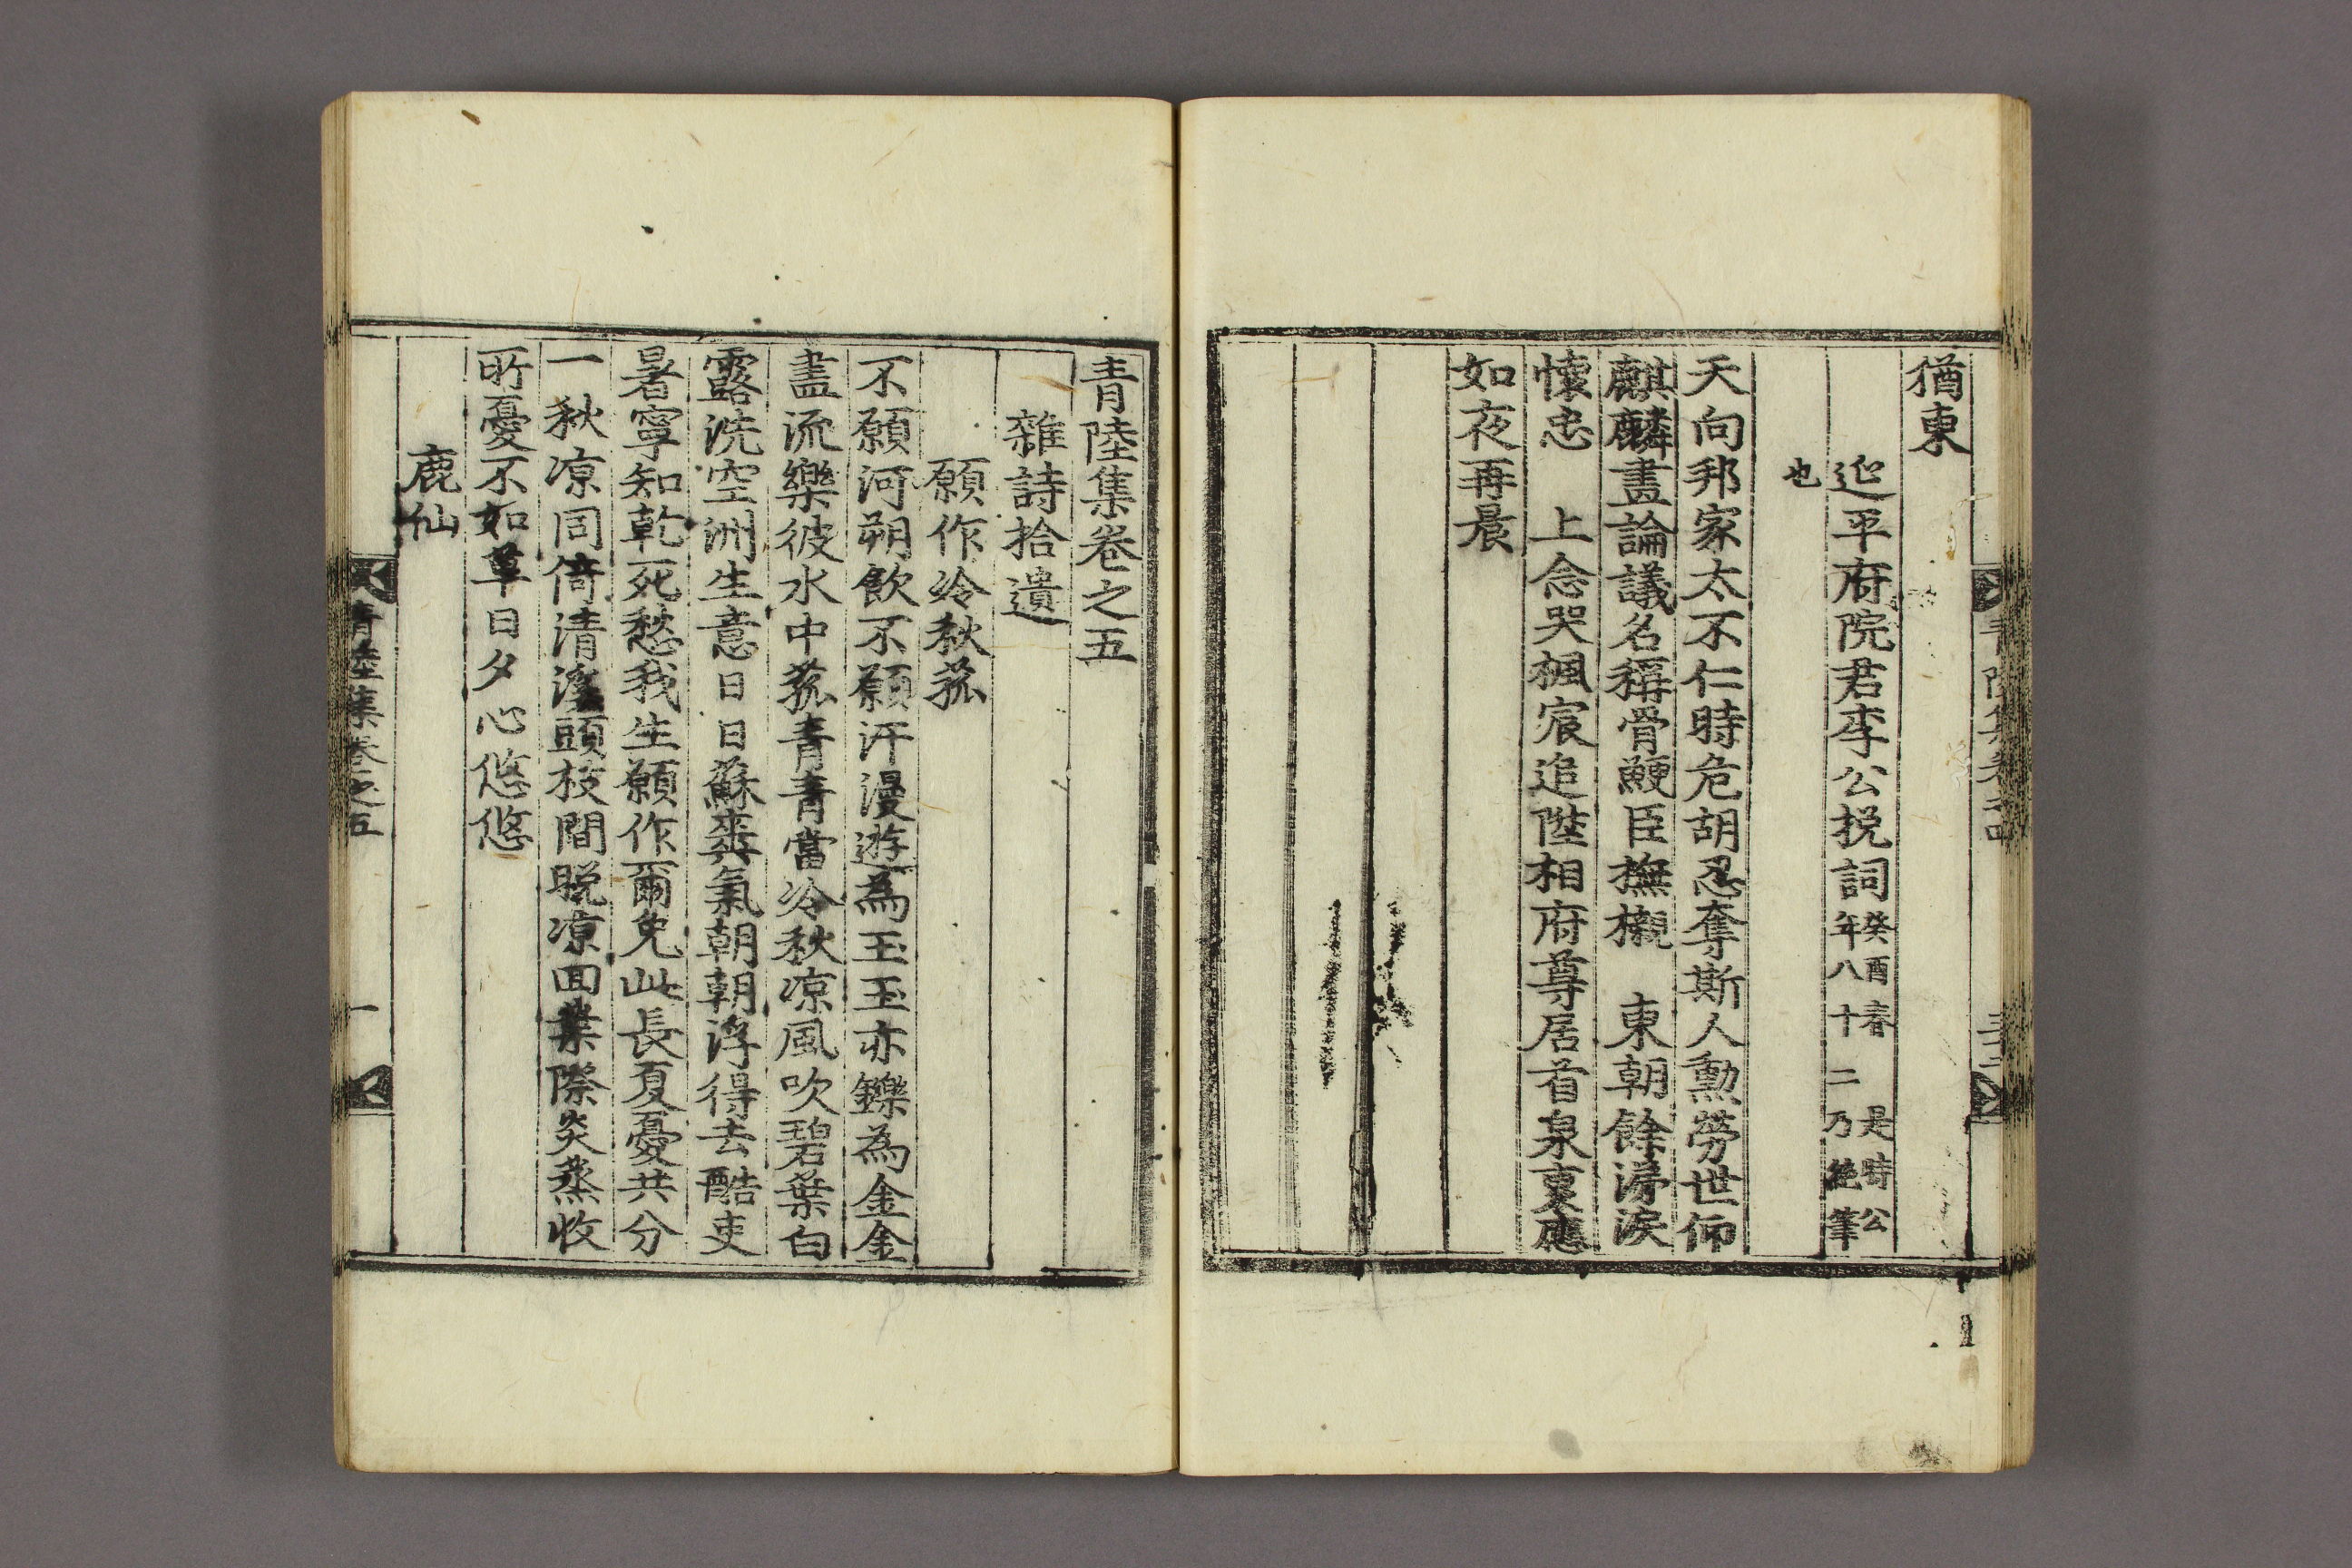 猶東
延平府院君李公挽詞癸酉春是時公年八十二乃絶筆
也
天向邦家太不仁時危胡忍奪斯人勳勞世仰
麒麟畫論議名稱骨鯁臣撫櫬 東朝餘涕淚
懷忠 上念哭楓宸追陞相府尊居首泉裏應
如夜再晨
青陸集卷之五
雜詩拾遺
願作冷秋菰
不願河朔飮不願汗漫遊為玉玉亦鑠為金金
盡流樂彼水中菰青青當冷秋凉風吹碧葉白
露洗空洲生意日日蘇爽氣朝朝浮得去酷吏
暑寧知乾死愁我生願作爾免此長夏憂共分
一秋凉同倚清溪頭枝間晩凉回葉際炎蒸收
所憂不如草日夕心悠悠
鹿仙
青陸集卷之五
一